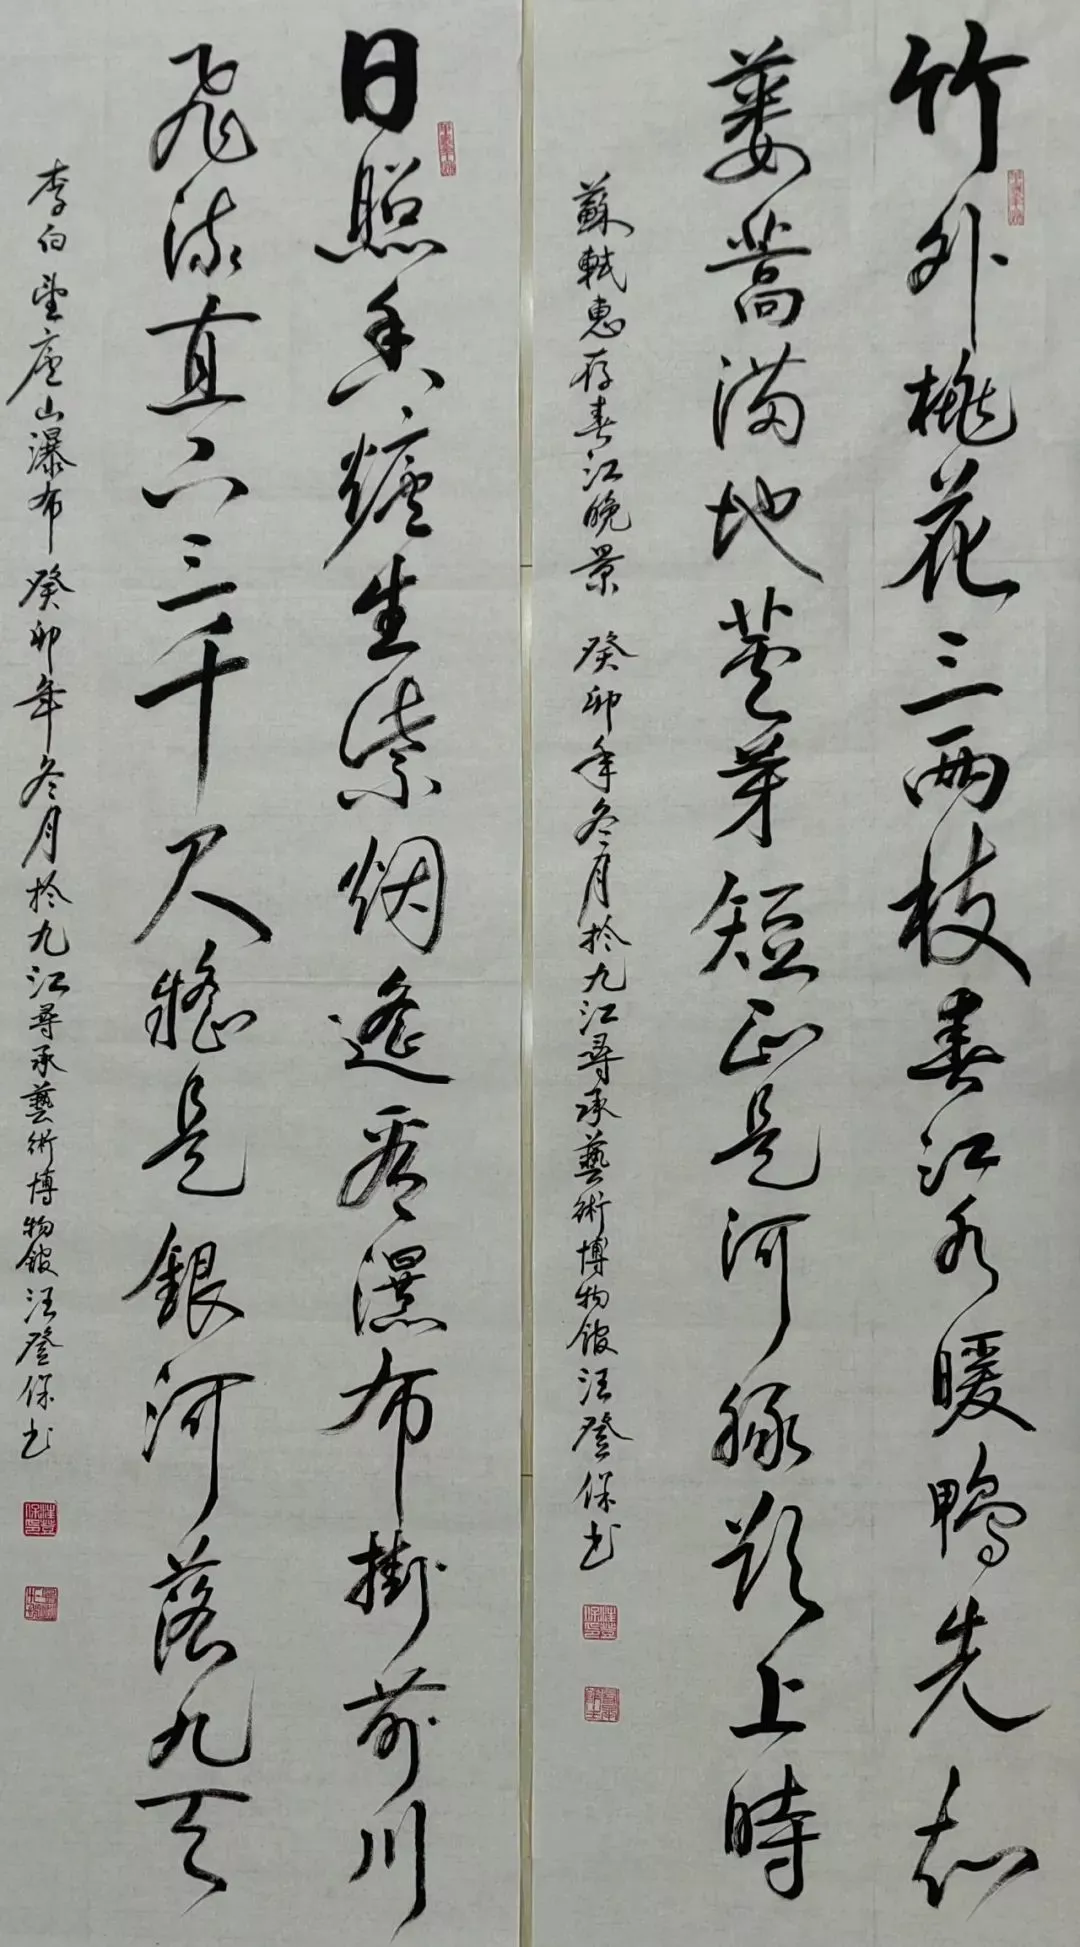 竹外桃花三兩枝春江水暖鴨先知
蔞蒿滿地蘆芽短正是河豚欲上時
蘇軾惠存春江晚景 癸卯年冬月於九江尋承藝術博物館汪登保书
日照香爐生紫烟遙看瀑布掛前川
飛流直下三千尺疑是銀河落九天
李白望廬山瀑布 癸卯年冬月於九江尋承藝術博物館汪登保书